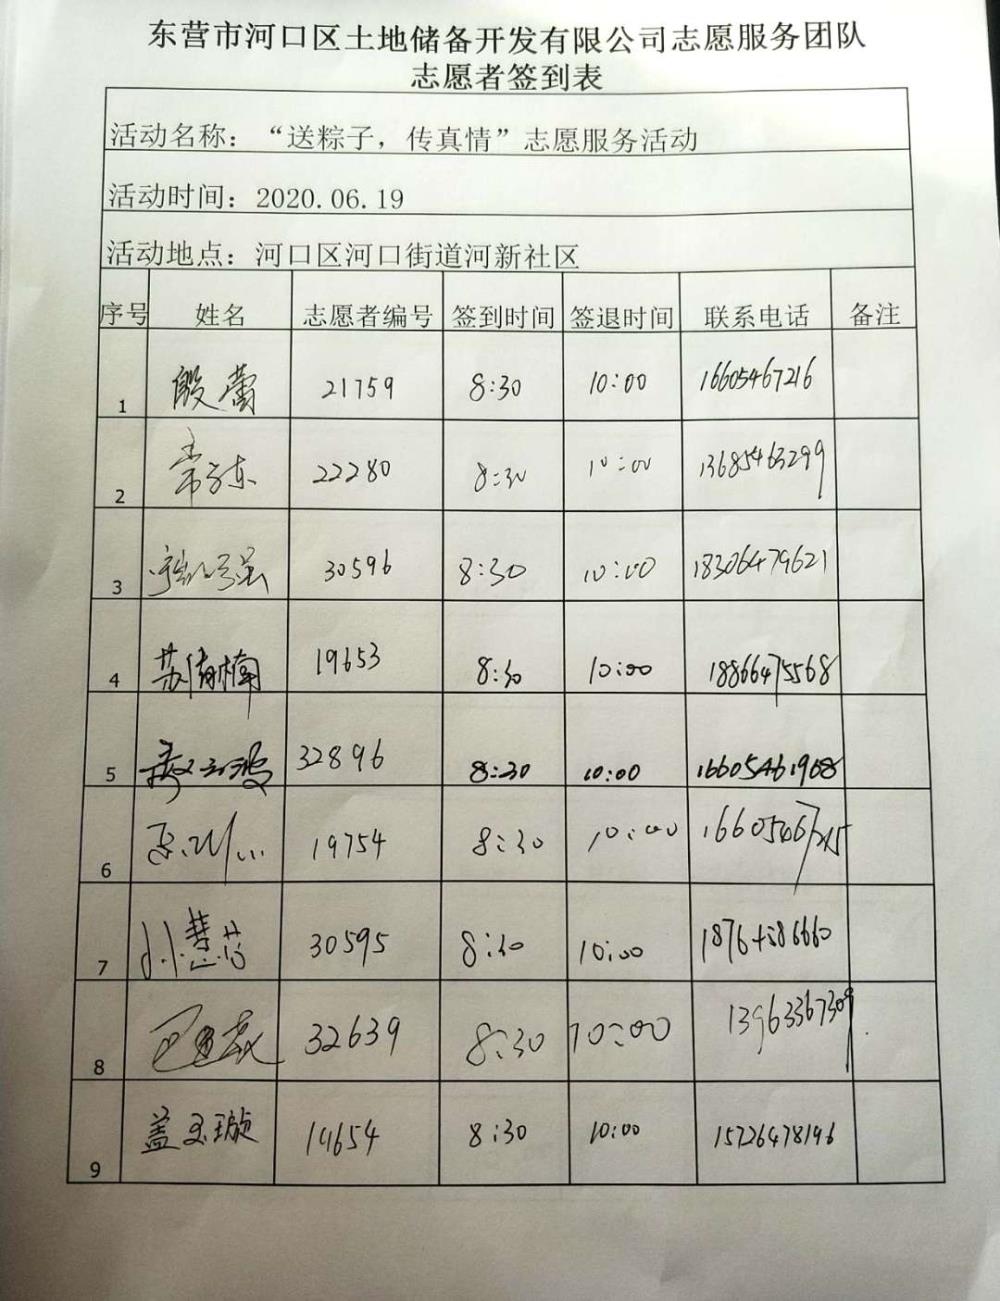 东营市河口区土地储备开发有限公司志愿服务团队
志愿者签到表
活动名称：“送粽子，传真情”志愿服务活动
活动时间：2020.06.19
活动地点：河口区河口街道河新社区
序号 姓名 志愿者编号 签到时间 签退时间 联系电话 备注
1 殷蕾 21759 8:30 10:00 16605467216
2 22280 8:30 10:00 13685463299
3 30596 8:30 10:00 18306479621
4 苏倩楠 19653 8:30 10:00 18866475568
5 32896 8:30 10:00 16605461968
6 19754 8:30 10:00
7 孙慧芯 30595 8:30 10:00
8 32639 8:30 10:00 13963367309
9 盖玉璇 19654 8:30 10:00 15726478196